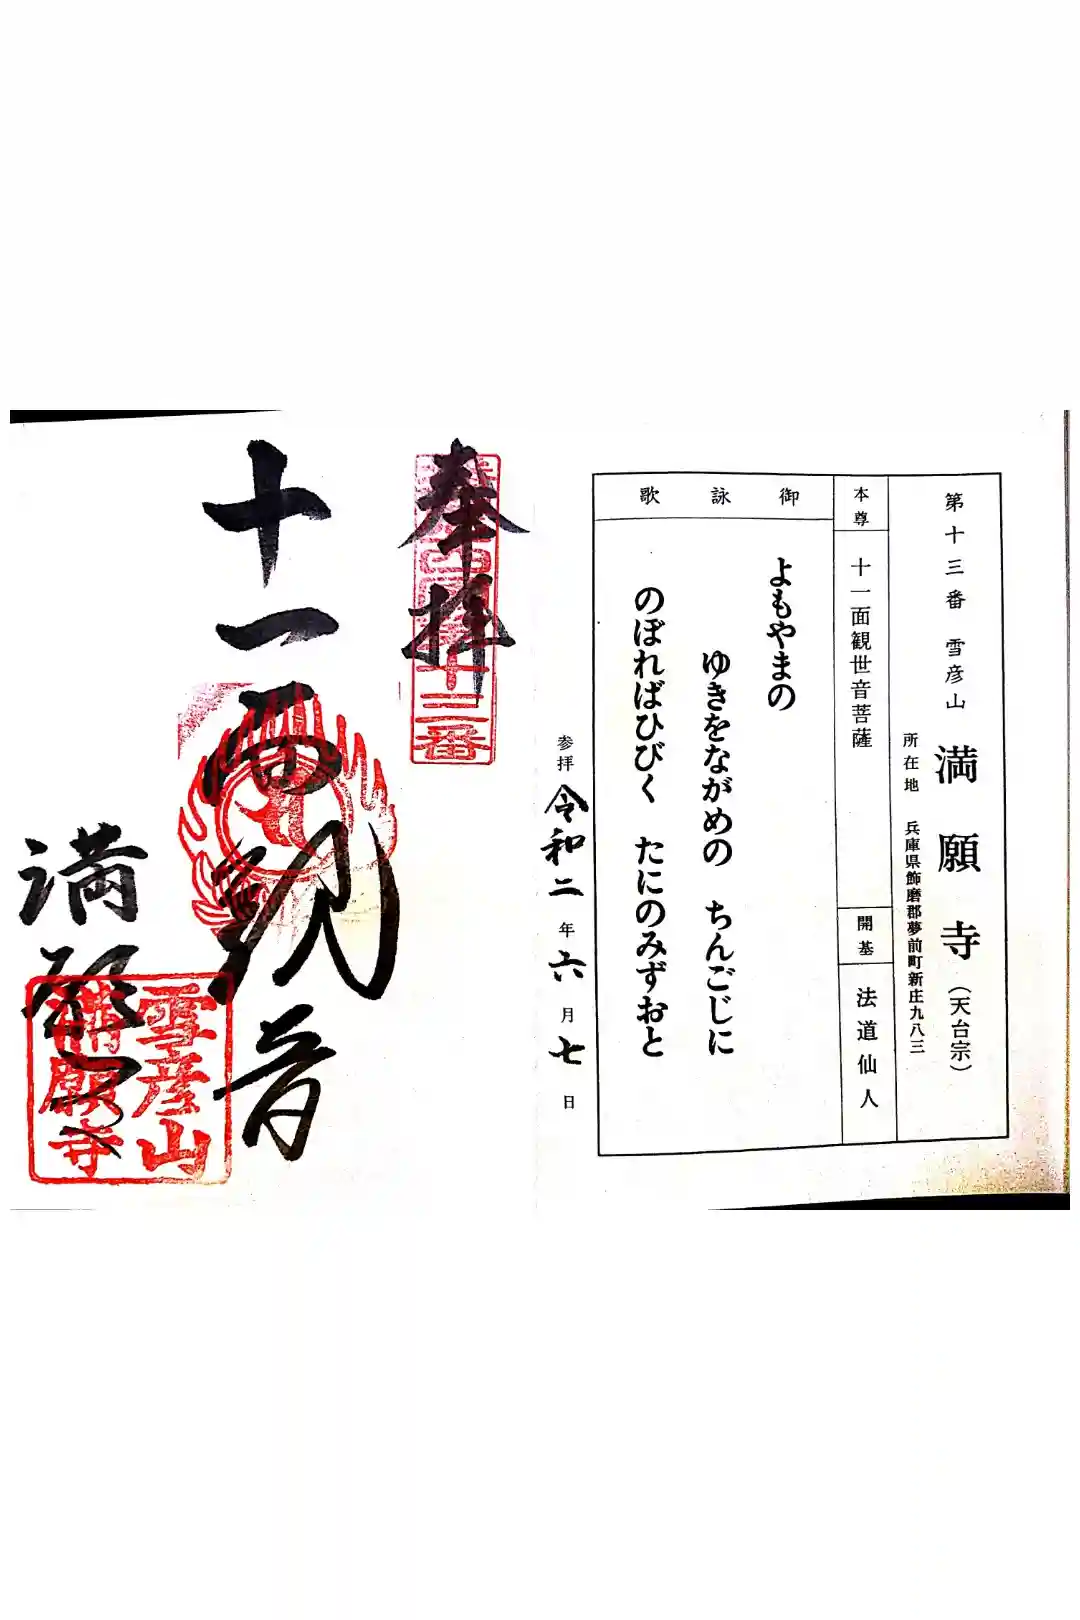 第十三番 雪彦山 満願寺（天台宗）
所在地 兵庫県飾磨郡夢前町新庄九八三
本尊 十一面観世音菩薩
開基 法道仙人
御詠歌
よもやまの
ゆきをながめの ちんごじに
のぼればひびく たにのみずおと
参拝 令和二年六月七日
奉拝
十三番
十一面観音
満願寺
雪彦山
満願寺